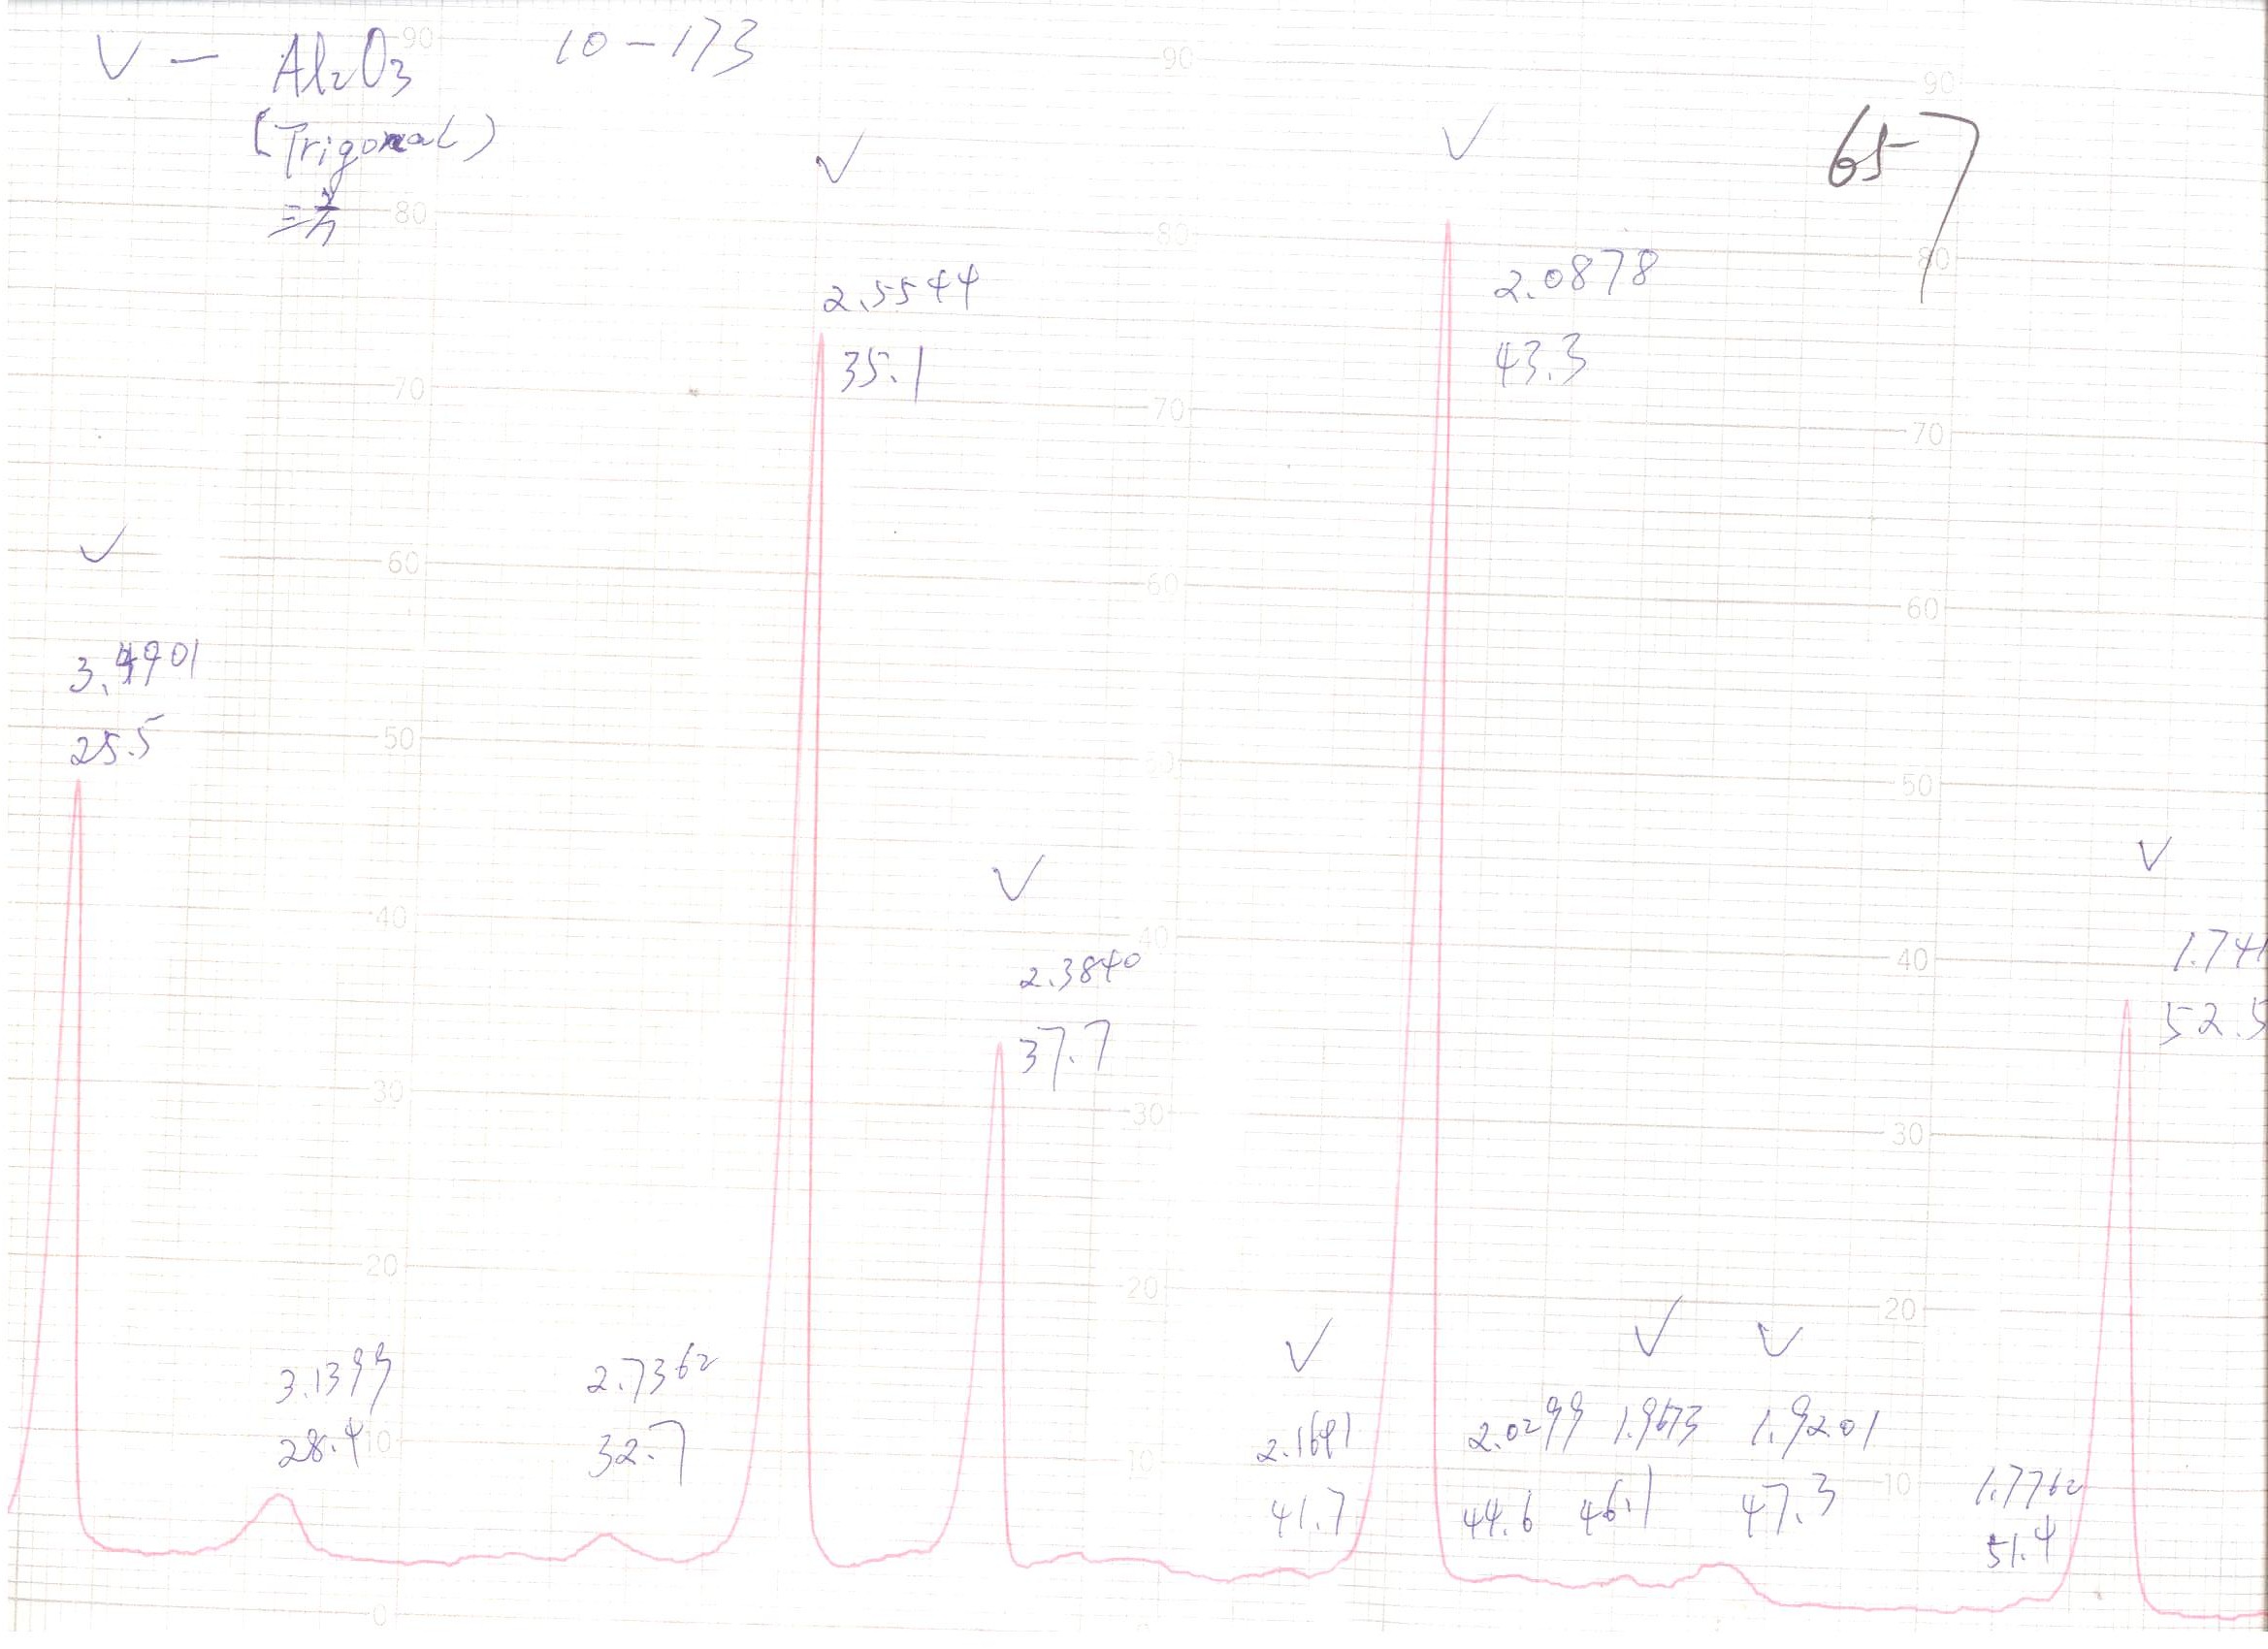 V — Al₂O₃ 10-173
(Trigonal)
三方
657
✓
3.4901
25.5
3.1399
28.4
2.7362
32.7
✓
2.5544
35.1
✓
2.3840
37.7
✓
2.1691
41.7
✓
2.0878
43.3
2.0299
44.6
✓
1.9673
46.1
✓
1.9201
47.3
1.7762
51.4
✓
1.741
52.5
90
80
70
60
50
40
30
20
10
0
90
80
70
60
50
40
30
20
10
90
80
70
60
50
40
30
20
10